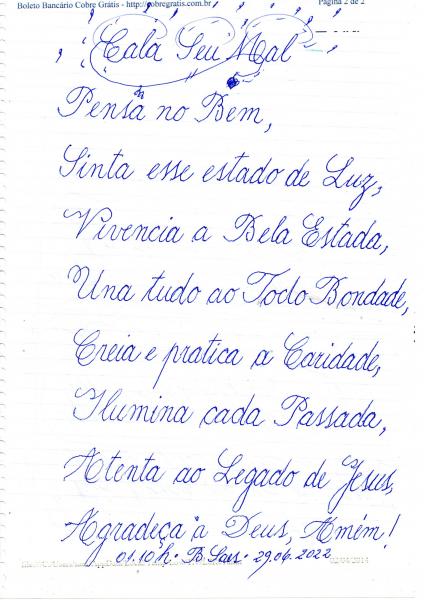 Boleto Bancário Cobre Grátis - http://cobregratis.com.br Página 2 de 2
Cala Seu Mal
Pensa no Bem,
Sinta esse estado de Luz,
Vivencia a Bela Estada,
Una tudo ao Todo Bondade,
Creia e pratica a Caridade,
Ilumina cada Passada,
Atenta ao Legado de Jesus,
Agradeça a Deus, Amém!
01.10 h. B. 29.06.2022